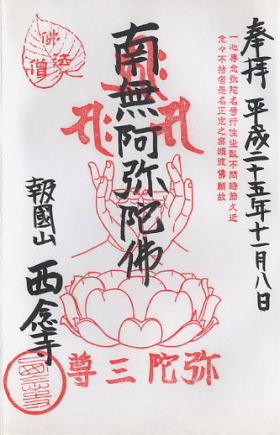 奉拝 平成二十五年十一月八日
一心専念弥陀名号行住坐臥不問時節久近
念々不捨者是名正定之業順彼佛願故
南無阿弥陀佛
佛法僧
報國山 西念寺
弥陀三尊